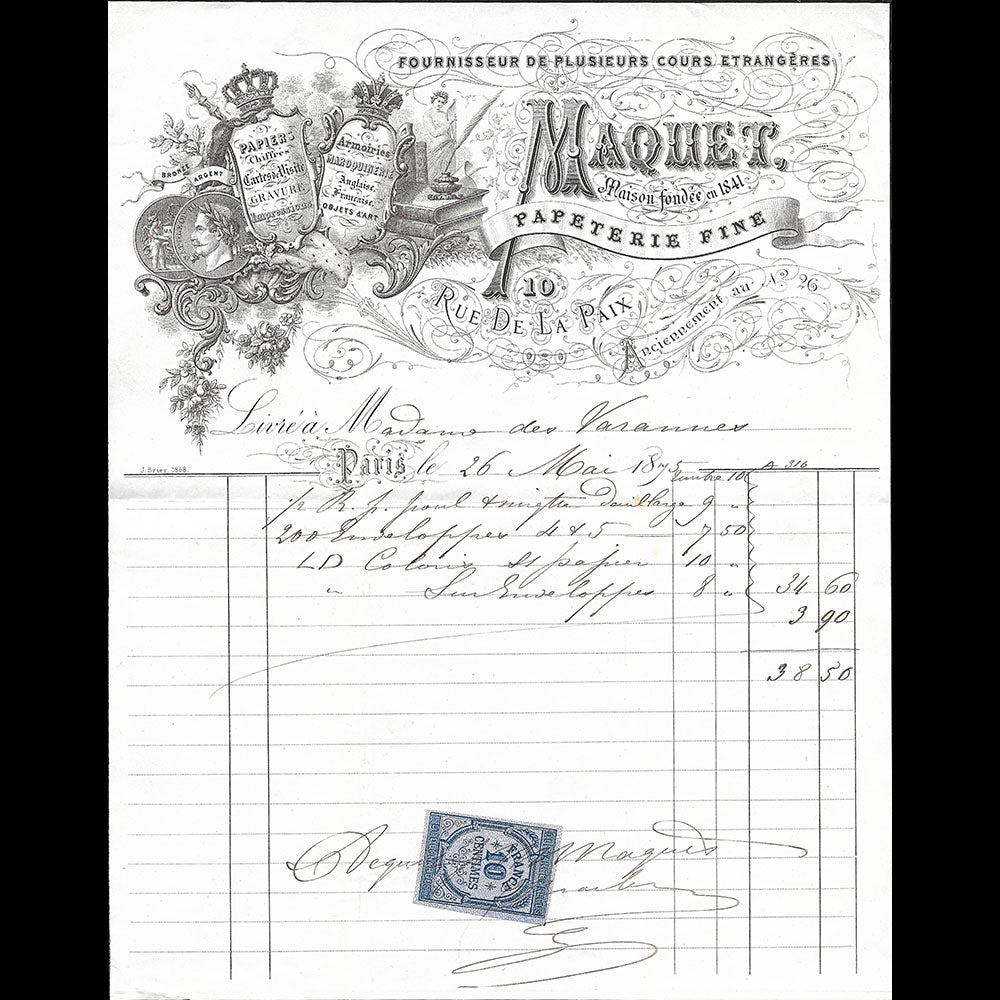 FOURNISSEUR DE PLUSIEURS COURS ETRANGÈRES
MAQUET,
Maison fondée en 1841
PAPETERIE FINE
10
RUE DE LA PAIX
Anciennement au No. 26
PAPIERS
Chiffres
Cartes de Visite
GRAVURE
Impressions
Armoiries
MAROQUINERIE
Anglaise
Française
OBJETS d'ART
BRONZE ARGENT
Livré à Madame des Varannes
Paris le 26 Mai 1875
J. Brier. 1868.
A 316
1/2 R. p. 9 "
200 Enveloppes 4 & 5 7 50
LD Coloris St papier 10 "
" Sur Enveloppes 8 " 34 60
3 90
38 50
FRANCE
10
CENTIMES
Maquet